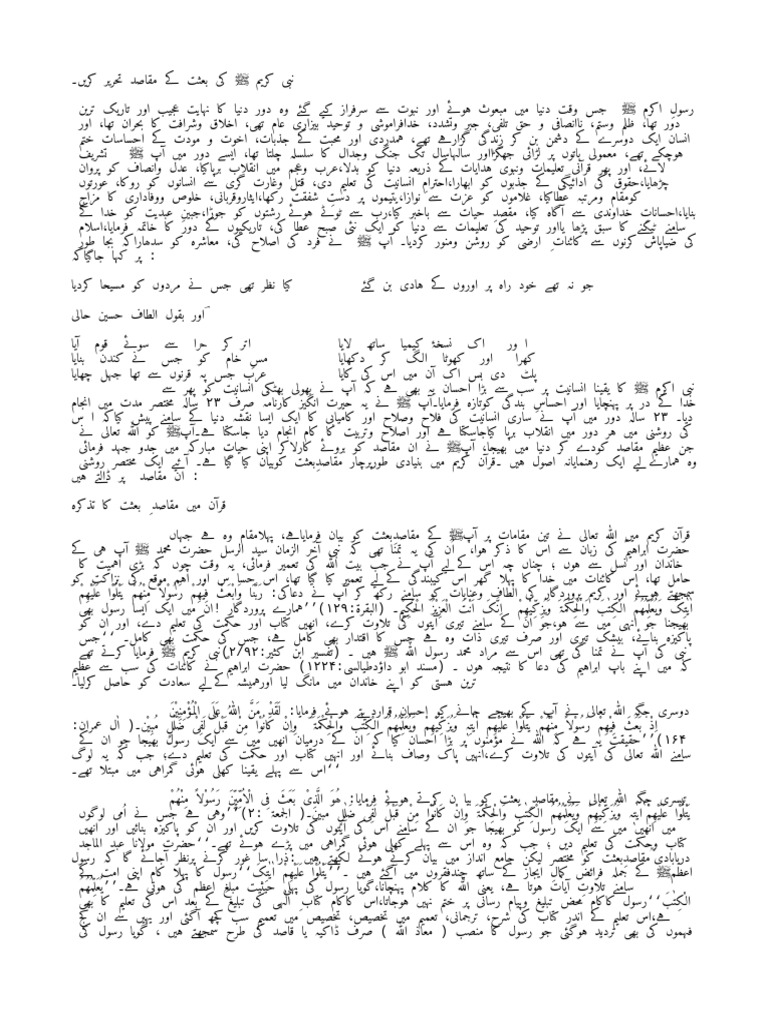 نبی کریم ﷺ کی بعثت کے مقاصد تحریر کریں۔
رسولِ اکرم ﷺ جس وقت دنیا میں مبعوث ہوئے اور نبوت سے سرفراز کیے گئے وہ دور دنیا کا نہایت عجیب اور تاریک ترین
دور تھا، ظلم وستم، ناانصافی و حق تلفی، جبر وتشدد، خدافراموشی و توحید بیزاری عام تھی، اخلاق وشرافت کا بحران تھا، اور
انسان ایک دوسرے کے دشمن بن کر زندگی گزارہے تھے، ہمدردی اور محبت کے جذبات، اخوت و مودت کے احساسات ختم
ہوچکے تھے، معمولی باتوں پر لڑائی جھگڑااور سالہاسال تک جنگ وجدال کا سلسلہ چلتا تھا، ایسے دور میں آپ ﷺ تشریف
لائے، اور پھر قرآنی تعلیمات ونبوی ہدایات کے ذریعہ دنیا کو بدلا،عرب وعجم میں انقلاب برپاکیا، عدل وانصاف کو پروان
چڑھایا،حقوق کی ادائیگی کے جذبوں کو ابھارا،احترامِ انسانیت کی تعلیم دی، قتل وغارت گری سے انسانوں کو روکا، عورتوں
کومقام ومرتبہ عطاکیا، غلاموں کو عزت سے نوازا،یتیموں پر دستِ شفقت رکھا،ایثاروقربانی، خلوص ووفاداری کا مزاج
بنایا،احساناتِ خداوندی سے آگاہ کیا، مقصدِ حیات سے باخبر کیا،رب سے ٹوٹے ہوئے رشتوں کو جوڑا،جبینِ عبدیت کو خدا کے
سامنے ٹیکنے کا سبق پڑھا یااور توحید کی تعلیمات سے دنیا کو ایک نئی صبح عطا کی، تاریکیوں کے دور کا خاتمہ فرمایا،اسلام
کی ضیاپاش کرنوں سے کائناتِ ارضی کو روشن ومنور کردیا۔ آپ ﷺ نے فرد کی اصلاح کی، معاشرہ کو سدھاراکہ بجا طور
پر کہا جاگیاکہ :
جو نہ تھے خود راہ پر اوروں کے ہادی بن گئے کیا نظر تھی جس نے مردوں کو مسیحا کردیا
اور بقول الطاف حسین حالی ؔ
اتر کر حرا سے سوئے قوم آیا ا ور اک نسخۂ کیمیا ساتھ لایا
مسِ خام کو جس نے کندن بنایا کھرا اور کھوٹا الگ کر دکھایا
عرب جس پہ قرنوں سے تھا جہل چھایا پلٹ دی بس اک آن میں اس کی کایا
نبی اکرم ﷺ کا یقینا انسانیت پر سب سے بڑا احسان یہ بھی ہے کہ آپ نے بھولی بھٹکی انسانیت کو پھر سے
خدا کے در پر پہنچایا اور احساسِ بندگی کوتازہ فرمایا۔آپ ﷺ نے یہ حیرت انگیز کارنامہ صرف ۲۳ سالہ مختصر مدت میں انجام
دیا۔ ۲۳ سالہ دور میں آپ نے ساری انسانیت کی فلاح وصلاح اور کامیابی کا ایک ایسا نقشہ دنیا کے سامنے پیش کیاکہ ا س
کی روشنی میں ہر دور میں انقلاب برپا کیاجاسکتا ہے اور اصلاح وتربیت کا کام انجام دیا جاسکتا ہے۔آپﷺ کو اللہ تعالی نے
جن عظیم مقاصد کودے کر دنیا میں بھیجا، آپﷺ نے ان مقاصد کو بروئے کارلاکر اپنی حیاتِ مبارکہ میں جدو جہد فرمائی
وہ ہمارے لیے ایک رہنمایانہ اصول ہیں ۔قرآن کریم میں بنیادی طورپرچار مقاصدبعثت کوبیان کیا گیا ہے۔ آئیے ایک مختصر روشنی
ان مقاصد پر ڈالتے ہیں :
قرآن میں مقاصد ِ بعثت کا تذکرہ
قرآن کریم میں اللہ تعالی نے تین مقامات پر آپﷺ کے مقاصدبعثت کو بیان فرمایاہے، پہلامقام وہ ہے جہاں
حضرت ابراہیمؑ کی زبان سے اس کا ذکر ہوا، ان کی یہ تمنا تھی کہ نبی آخر الزمان سید الرسل حضرت محمد ﷺ آپ ہی کے
خاندان اور نسل سے ہوں ؛ چناں چہ اس کے لیے آپ نے جب بیت اللہ کی تعمیر فرمائی، یہ وقت چوں کہ بڑی اہمیت کا
حامل تھا، اس کائنات میں خدا کا پہلا گھر اس کی بندگی کے لیے تعمیر کیا گیا تھا، اس حسا س اور اہم موقع کی نزاکت کو
سمجھتے ہوئے اور کریم پروردگار کے الطاف وعنایات کو سامنے رکھ کر آپ نے دعاکی: رَبَّنَا وَابْعَثْ فِیْھِمْ رَسُوْلًا مِّنْھُمْ یَتْلُوْا عَلَیْھِمْ
اٰیٰتِکَ وَیُعَلِّمُھُمُ الْکِتٰبَ وَالْحِکْمَۃَ وَیُزَکِّیْھِمْ اِنَّکَ اَنْتَ الْعَزِیْزُ الْحَکِیْمُ۔ (البقرۃ:۱۲۹)’’ہمارے پروردگار !ان میں ایک ایسا رسول بھی
بھیجنا جو انہی میں سے ہو،جو ان کے سامنے تیری آیتوں کی تلاوت کرے، انھیں کتاب اور حکمت کی تعلیم دے، اور ان کو
پاکیزہ بنائے، بیشک تیری اور صرف تیری ذات وہ ہے جس کا اقتدار بھی کامل ہے، جس کی حکمت بھی کامل۔ ‘‘جس
نبی کی آپ نے تمنا کی تھی اس سے مراد محمد رسول اللہ ﷺ ہیں ۔ (تفسیر ابن کثیر:۲/۹۲)نبی کریم ﷺ فرمایا کرتے تھے
کہ میں اپنے باپ ابراہیم کی دعا کا نتیجہ ہوں ۔ (مسند ابو داؤدطیالسی:۱۲۲۴) حضرت ابراہیم نے کائنات کی سب سے عظیم
ترین ہستی کو اپنے خاندان میں مانگ لیا اورہمیشہ کے لیے سعادت کو حاصل کرلیا۔
دوسری جگہ اللہ تعالی نے آپ کے بھیجے جانے کو احسان قراردیتے ہوئے فرمایا: لَقَدْ مَنَّ اللہُ عَلَی الْمُؤْمِنِیْنَ
اِذْ بَعَثَ فِیْھِمْ رَسُوْلًا مِّنْھُمْ یَتْلُوْا عَلَیْھِمْ اٰیٰتِہٖ وَیُزَکِّیْھِمْ وَیُعَلِّمُھُمُ الْکِتٰبَ وَالْحِکْمَۃَ وَاِنْ کَانُوْا مِنْ قَبْلُ لَفِیْ ضَلٰلٍ مُّبِیْنٍ۔( اٰل عمران:
۱۶۴)’’حقیقت یہ ہے کہ اللہ نے مؤمنوں پر بڑا احسان کیا کہ ان کے درمیان انھیں میں سے ایک رسول بھیجا جو ان کے
سامنے اللہ تعالی کی آیتوں کی تلاوت کرے،انہیں پاک وصاف بنائے اور انہیں کتاب اور حکمت کی تعلیم دے؛ جب کہ یہ لوگ
اس سے پہلے یقینا کھلی ہوئی گمراہی میں مبتلا تھے۔‘‘
تیسری جگہ اللہ تعالی نے مقاصد ِ بعثت کو بیا ن کرتے ہوئے فرمایا: ھُوَ الَّذِیْ بَعَثَ فِی الْاُمِّیّٖنَ رَسُوْلاً مِنْھُمْ
یَتْلُوْا عَلَیْھِمْ اٰیٰتِہٖ وَیُزَکِّیْھِمْ وَیُعَلِّمُھُمُ الْکِتٰبَ وَالْحِکْمَۃَ وَاِنْ کَانُوْا مِنْ قَبْلُ لَفِیْ ضَلٰلٍ مُبِیْنٍ۔( الجمعۃ :۲)’’وہی ہے جس نے اُمی لوگوں
میں انھیں میں سے ایک رسول کو بھیجا جو ان کے سامنے اس کی آیتوں کی تلاوت کریں اور ان کو پاکیزہ بنائیں اور انھیں
کتاب وحکمت کی تعلیم دیں ؛ جب کہ وہ اس سے پہلے کھلی ہوئی گمراہی میں پڑے ہوئے تھے۔‘‘حضرت مولانا عبد الماجد
دریابادی مقاصدِبعثت کو مختصر لیکن جامع انداز میں بیان کرتے ہوئے لکھتے ہیں :ذرا سا غور کرنے پرنظر آجائے گا کہ رسول
اعظمﷺ کے جملہ فرائض کمال ایجاز کے ساتھ چندفقروں میں آگئے ہیں ۔’’یَتْلُوْا عَلَیْھِمْ اٰیٰتِکَ‘‘رسول کا پہلا کام اپنی امت کے
سامنے تلاوتِ آیات ہوتا ہے، یعنی اللہ کا کلام پہنچانا،گویا رسول کی پہلی حیثیت مبلغ اعظم کی ہوتی ہے۔’’یُعَلِّمُھُمُ
الْکِتٰبَ‘‘رسول کاکام محض تبلیغ وپیام رسانی پر ختم نہیں ہوجاتا،اس کاکام کتاب ِ الٰہی کی تبلیغ کے بعد اس کی تعلیم کا بھی
ہے،اس تعلیم کے اندر کتاب کی شرح، ترجمانی، تعمیم میں تخصیص، تخصیص میں تعمیم سب کچھ آگئی اور یہیں سے ان کج
فہموں کی بھی تردید ہوگئی جو رسول کا منصب ( معاذ اللہ ) صرف ڈاکیہ یا قاصد کی طرح سمجھتے ہیں ، گویا رسول کی